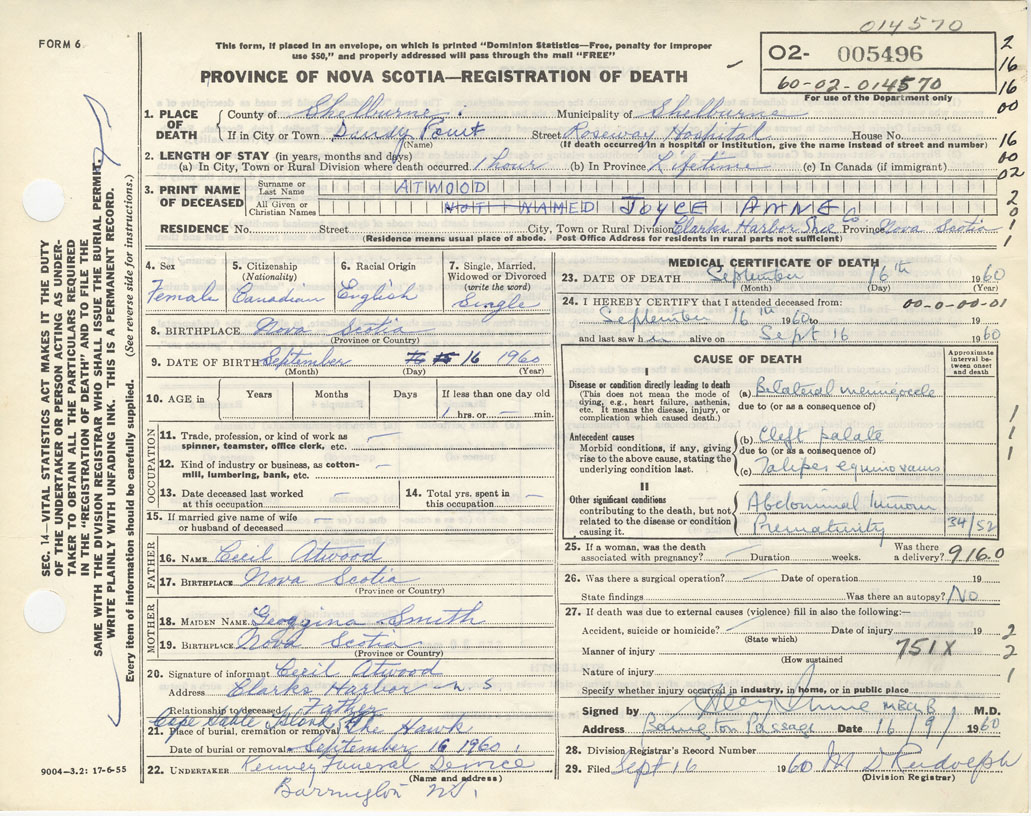 014570
FORM 6
This form, if placed in an envelope, on which is printed "Dominion Statistics—Free, penalty for improper
use $50," and properly addressed will pass through the mail "FREE"
O2- 005496
60-02-014570
For use of the Department only
PROVINCE OF NOVA SCOTIA—REGISTRATION OF DEATH
2
16
16
00
16
00
02
2
0
1
1
1. PLACE OF DEATH
County of Shelburne. Municipality of Shelburne
If in City or Town Sandy Point Street Roseway Hospital House No.
(Name) (If death occurred in a hospital or institution, give the name instead of street and number)
2. LENGTH OF STAY (in years, months and days)
(a) In City, Town or Rural Division where death occurred 1 hour (b) In Province Lifetime (c) In Canada (if immigrant)
3. PRINT NAME OF DECEASED
Surname or Last Name ATWOOD
All Given or Christian Names NOT NAMED JOYCE ANNE
RESIDENCE No. Street City, Town or Rural Division Clarks Harbor Shel Co. Province Nova Scotia
(Residence means usual place of abode. Post Office Address for residents in rural parts not sufficient)
4. Sex
Female
5. Citizenship
(Nationality)
Canadian
6. Racial Origin
English
7. Single, Married,
Widowed or Divorced
(write the word)
Single
8. BIRTHPLACE Nova Scotia
(Province or Country)
9. DATE OF BIRTH September 16 1960
(Month) (Day) (Year)
10. AGE in Years Months Days If less than one day old
1 hrs. or — min.
OCCUPATION
11. Trade, profession, or kind of work as
spinner, teamster, office clerk, etc. —
12. Kind of industry or business, as cotton-
mill, lumbering, bank, etc. —
13. Date deceased last worked
at this occupation —
14. Total yrs. spent in
this occupation —
15. If married give name of wife
or husband of deceased —
FATHER
16. NAME Cecil Atwood
17. BIRTHPLACE Nova Scotia
(Province or Country)
MOTHER
18. MAIDEN NAME Georgina Smith
19. BIRTHPLACE Nova Scotia
(Province or Country)
20. Signature of informant Cecil Atwood
Address Clarks Harbor N.S
Relationship to deceased Father
Cape Sable Island
21. Place of burial, cremation or removal The Hawk
Date of burial or removal September 16 1960.
22. UNDERTAKER Kenney Funeral Service
(Name and address)
Barrington N.S.
MEDICAL CERTIFICATE OF DEATH
23. DATE OF DEATH September 16th 1960
(Month) (Day) (Year)
24. I HEREBY CERTIFY that I attended deceased from: 00-0-00-01
September 16th 1960 to 19
and last saw h alive on Sept 16 1960
CAUSE OF DEATH
Approximate
interval be-
tween onset
and death
I
Disease or condition directly leading to death
(This does not mean the mode of
dying, e.g., heart failure, asthenia,
etc. It means the disease, injury, or
complication which caused death.)
(a) Bilateral meningocele
due to (or as a consequence of)
Antecedent causes
Morbid conditions, if any, giving
rise to the above cause, stating the
underlying condition last.
(b) Cleft palate
due to (or as a consequence of)
(c) Talipes equinovarus
1
1
1
1
II
Other significant conditions
contributing to the death, but not
related to the disease or condition
causing it.
Abdominal tumour
Prematurity 34/52
25. If a woman, was the death
associated with pregnancy? — Duration weeks. Was there
a delivery? 916.0
26. Was there a surgical operation? — Date of operation 19
State findings Was there an autopsy? No
27. If death was due to external causes (violence) fill in also the following:—
Accident, suicide or homicide? Date of injury 19
(State which)
Manner of injury 751X
(How sustained
Nature of injury
2
2
1
Specify whether injury occurred in industry, in home, or in public place
Signed by M.D.
Address Barrington Passage Date 16/9/ 1960
28. Division Registrar's Record Number
29. Filed Sept 16 1960 M D Rudolph
(Division Registrar)
9004—3.2: 17-6-55
SEC. 14—VITAL STATISTICS ACT MAKES IT THE DUTY
OF THE UNDERTAKER OR PERSON ACTING AS UNDER-
TAKER TO OBTAIN ALL THE PARTICULARS REQUIRED
IN THE "REGISTRATION OF DEATH" AND TO FILE THE
SAME WITH THE DIVISION REGISTRAR WHO SHALL ISSUE THE BURIAL PERMIT.
WRITE PLAINLY WITH UNFADING INK. THIS IS A PERMANENT RECORD.
Every item of information should be carefully supplied. (See reverse side for instructions.)